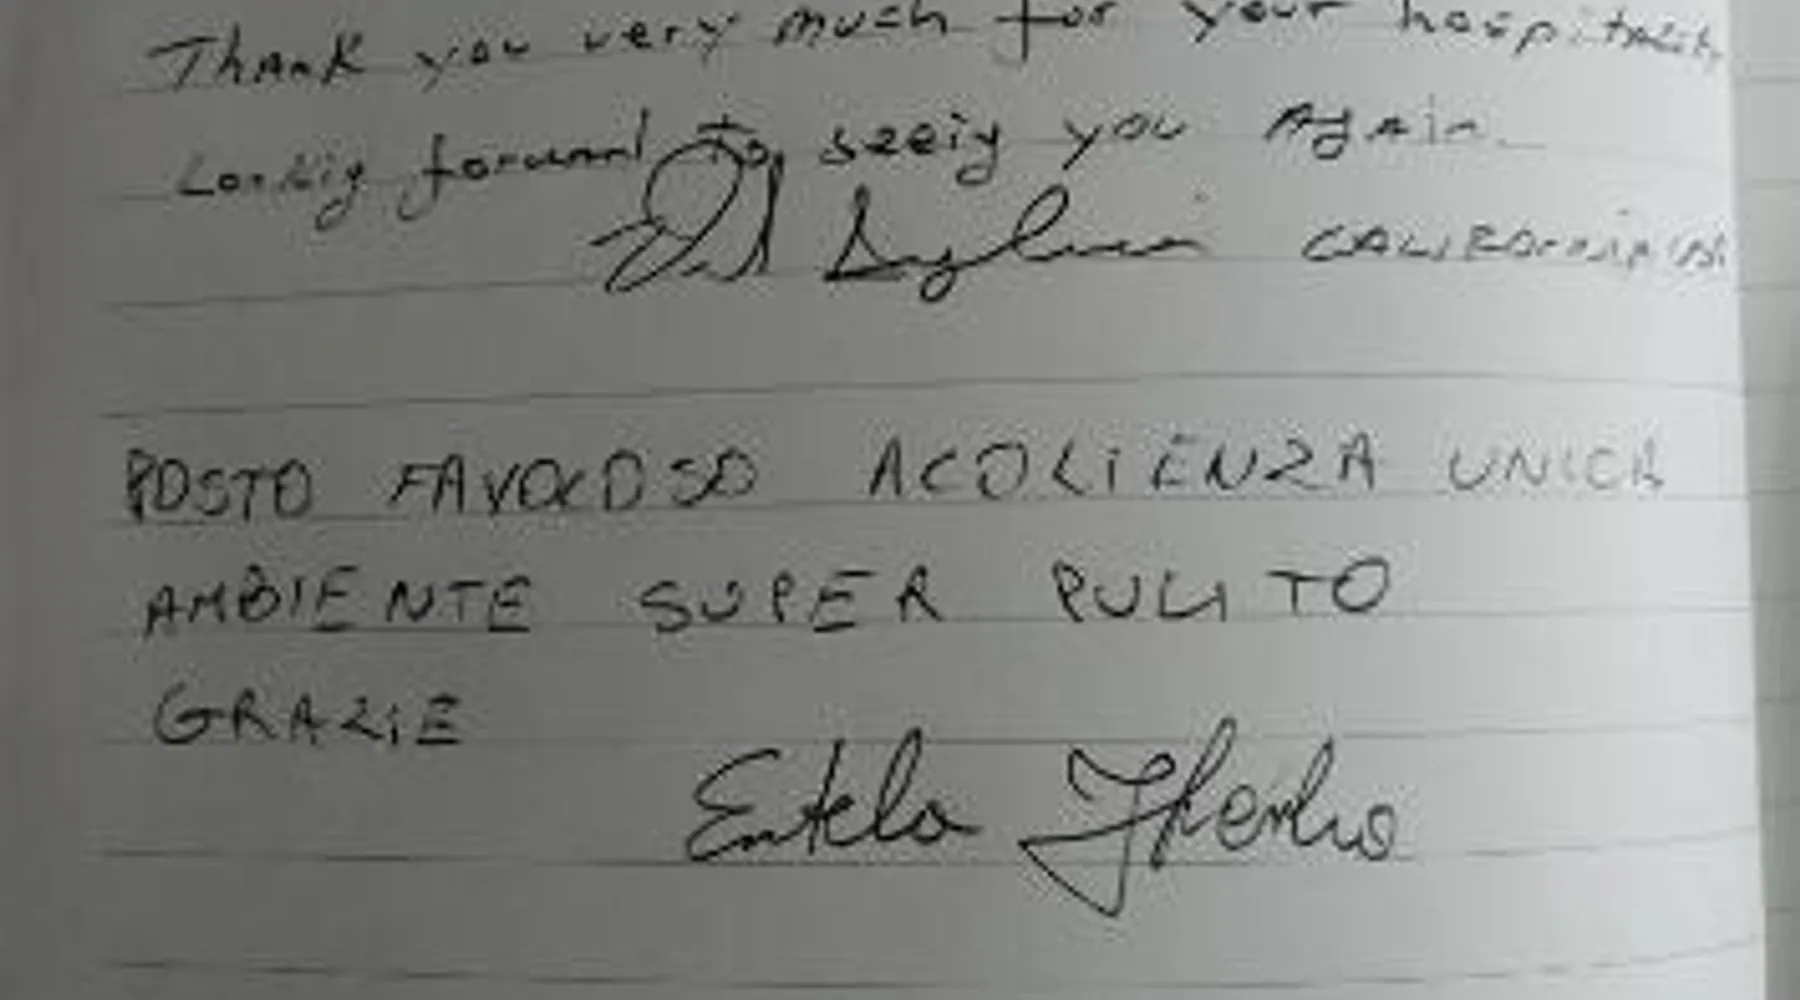 Thank you very much for your hospitality
Looking forward to seeig you Again.
CALIFORNIA
POSTO FAVOLOSO ACOLIENZA UNICA
AMBIENTE SUPER PULITO
GRAZIE
Entela